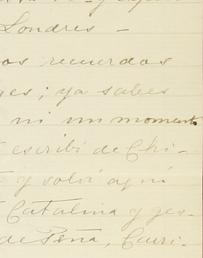 Londres —
os recuerdos
es; ya sabes
ni un momento
escribí de Chi-
y volví aquí
Catalina y
de Peña,